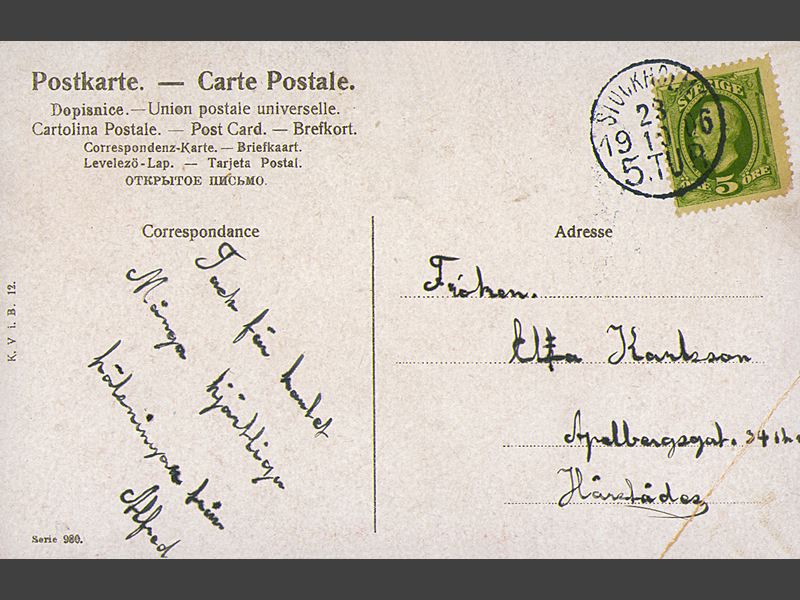 Postkarte. — Carte Postale.
Dopisnice.—Union postale universelle.
Cartolina Postale. — Post Card. — Brefkort.
Correspondenz-Karte. — Briefkaart.
Levelezö-Lap. — Tarjeta Postal.
ОТКРЫТОЕ ПИСЬМО.
STOCKHOL
23
19 13 06
5.TUR
SVERIGE
5 ÖRE
Correspondance
Tack för kortet
Många hjärtliga
hälsningar från
Alfred
Adresse
Fröken.
Karlsson
Apelbergsgat. 54
Härstädes
K. V i. B. 12.
Serie 980.